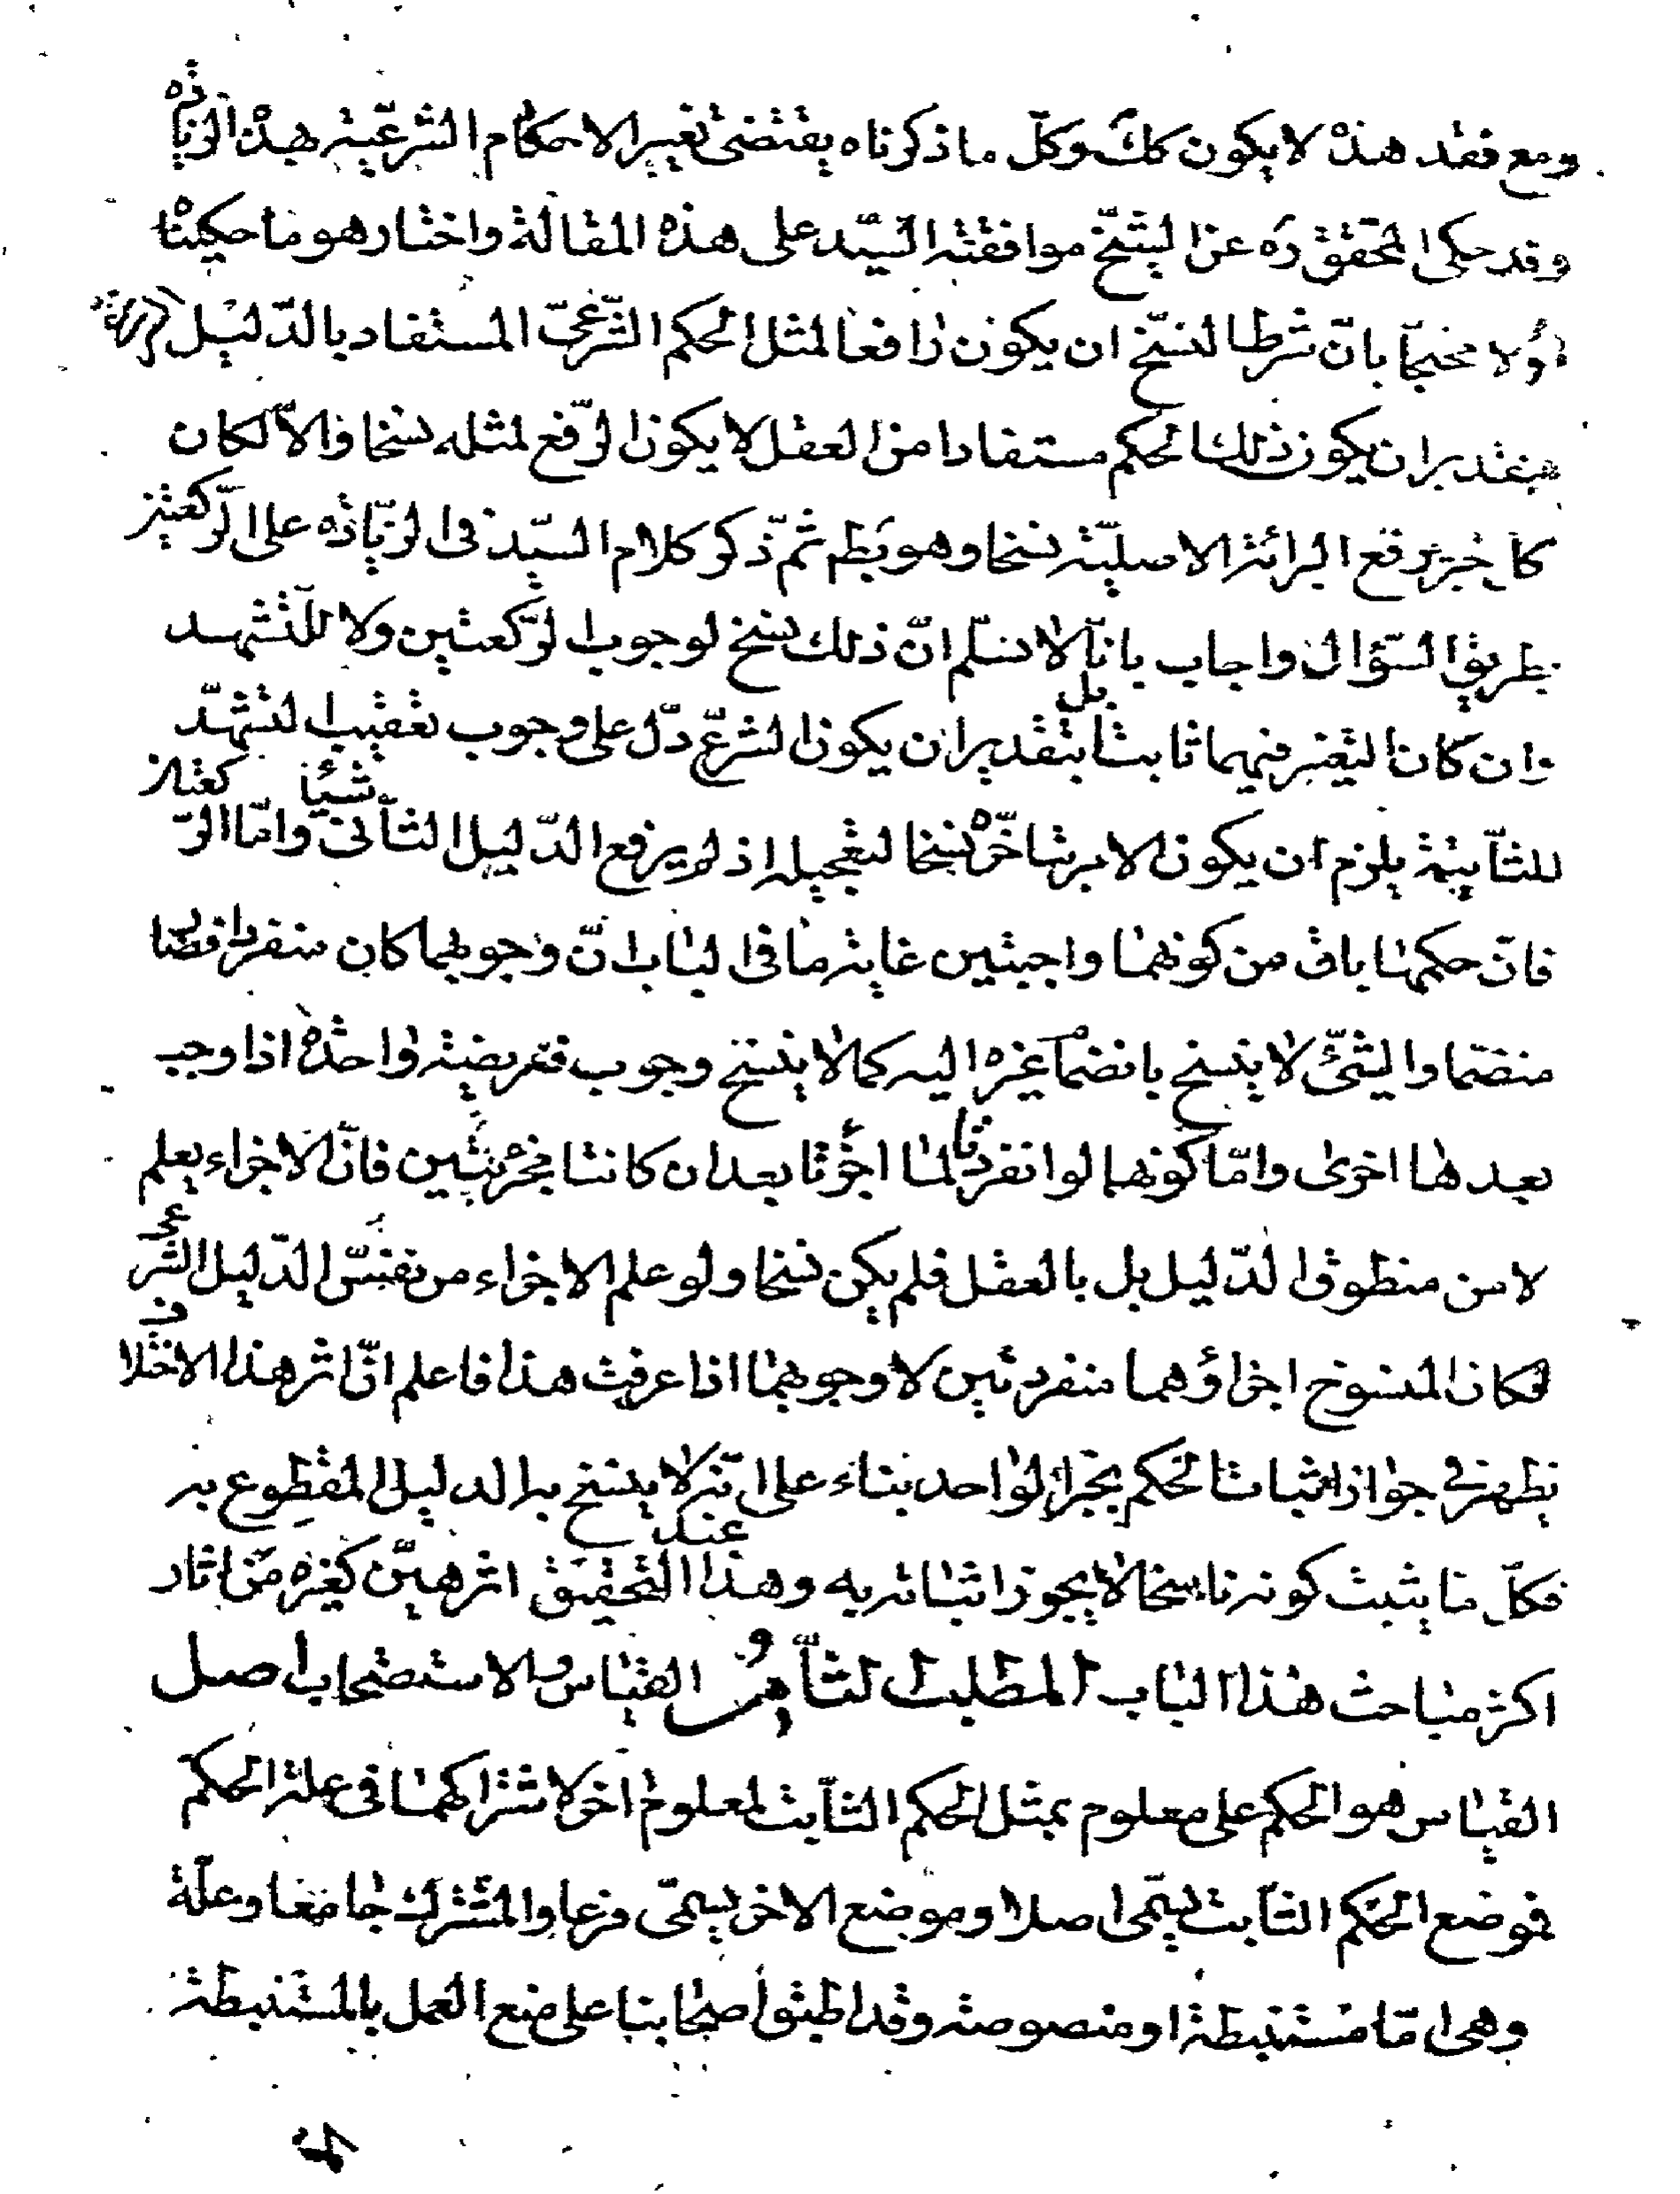 ومع فقد هذه لا يكون كك وكلّ ما ذكرناه يقتضى تغيير الاحكام الشرعيّة بهذه الزيادة
وقد حكى المحقق ره عن الشيخ موافقة السيّد على هذه المقالة واختار هو ما حكيناه
اوّلا محتجّا بانّ شرط النسخ ان يكون رافعا لمثل الحكم الشرعىّ المستفاد بالدّليل الشرعى
فبتقدير ان يكون ذلك الحكم مستفادا من العقل لا يكون الرّفع لمثله نسخا والاّ لكان
كل خبر يرفع البرائة الاصليّة نسخا وهو بط ثمّ ذكر كلام السيّد فى الزّيادة على الرّكعتين
بطريق السّؤال واجاب بانّا لا نسلّم انّ ذلك نسخ لوجوب الرّكعتين ولا للتّشهد
وان كان التغيير فيهما ثابتا بل بتقدير ان يكون الشرع دلّ على وجوب تعقيب التشهّد
للثّانية يلزم ان يكون الامر بتاخّره نسخا لتعجيله اذ لم يرفع الدّليل الثّانى شيئا وامّا الرّكعتان
فانّ حكمهما باق من كونهما واجبتين غاية ما فى الباب انّ وجوبهما كان منفردا فصا
منضمّا والشّئ لا ينسخ بانضمام غيره اليه كما لا ينسخ وجوب فريضة واحدة اذا وجب
بعدها اخرى وامّا كونهما لو انفردتا لما اجزئتا بعد ان كانتا مجزئتين فانّ الاجزاء يعلم
لا من منطوق الدّليل بل بالعقل فلم يكن نسخا ولو علم الاجزاء من نفس الدّليل الشرعى
لكان المنسوخ اجزاؤهما منفردتين لا وجوبهما اذا عرفت هذا فاعلم انّ اثر هذا الاختلاف
يظهر فى جواز اثبات الحكم بخبر الواحد بناء على انّه لا ينسخ به الدليل المقطوع به
فكلّ ما يثبت كونه ناسخا لا يجوز اثباته به وهذا عند التحقيق اثر هيّن كغيره من اثار
اكثر مباحث هذا الباب المطلب الثّامن القياس والاستصحاب اصل
القياس هو الحكم على معلوم بمثل الحكم الثّابت لمعلوم اخر لاشتراكهما فى علة الحكم
فموضع الحكم الثّابت يسمّى اصلا وموضع الاخر يسمّى فرعا والمشترك جامعا وعلّة
وهى امّا مستنبطة او منصوصة وقد اطبق اصحابنا على منع العمل بالمستنبطة